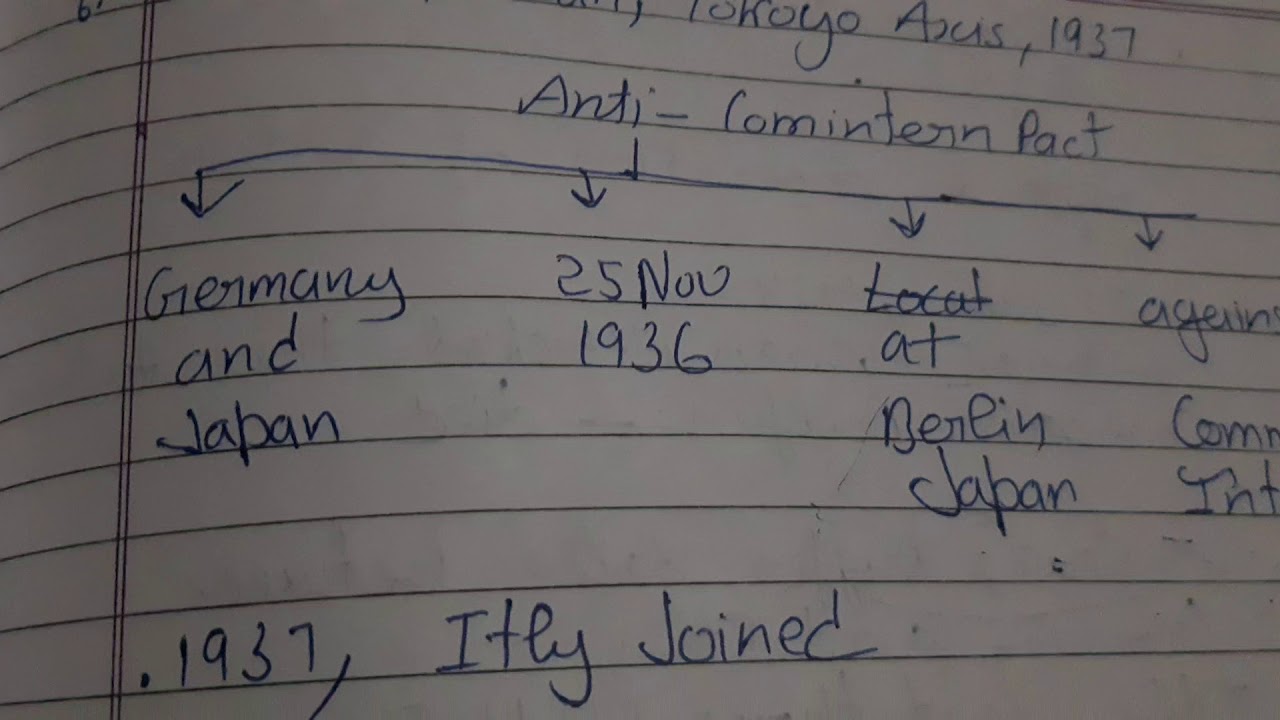 6. Tokoyo Axis, 1937
Anti - Comintern Pact
Germany 25 Nov Local agains
and 1936 at
Japan Berlin Comm
Japan Int
. 1937, Itly Joined